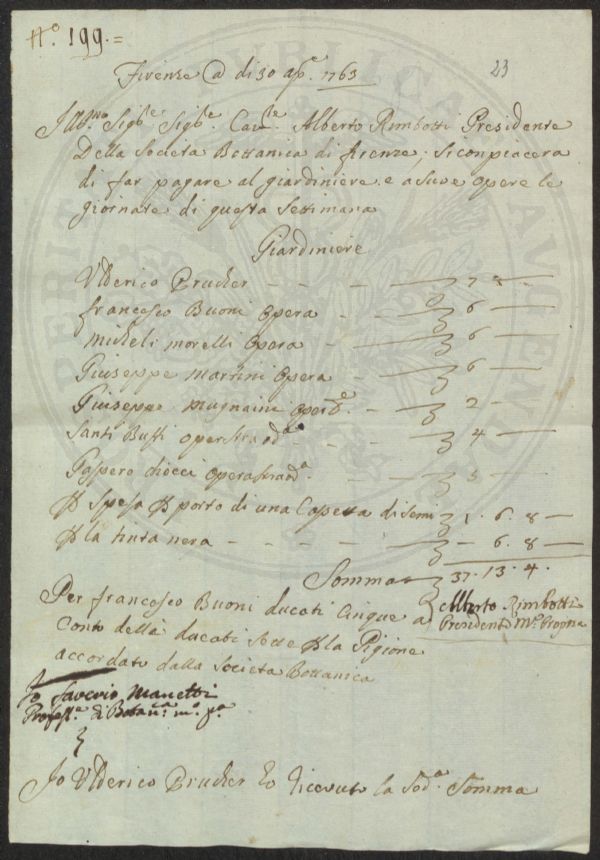 N.º 199.=
23
Firenze @ di 30 ap.e 1763
Ill.mo Sig.re Sig.re Cav.re Alberto Rimbotti Presidente
Della Società Bottanica di firenze, si conpiacera
di far pagare al giardiniere e a sue opere le
giornate di questa Settimana
Giardiniere
Ulderico Prucker - - - - 7 -
francesco Buoni opera - 6 -
micheli morelli opera - 6 -
Giuseppe martini opera - 6 -
Giuseppe mugnaini oper - 2 -
Santi Buffi - 4 -
Gaspero chiocci
P spesa P porto di una Casetta di Semi 1. 6. 8 -
P la tinta nera - - - - - 6. 8 -
Somma 37. 13. 4.
Per francesco Buoni ducati Cinque a
Conto della ducati Sette P la Pigione
accordato dalla Societa Bottanica
Alberto Rimbotti
Presidente M.o Propria
Io Saverio Manetti
Profess.e di Botan.ca m.o p.a
Io Ulderico Prucker ho ricevuto la Sod.a Somma